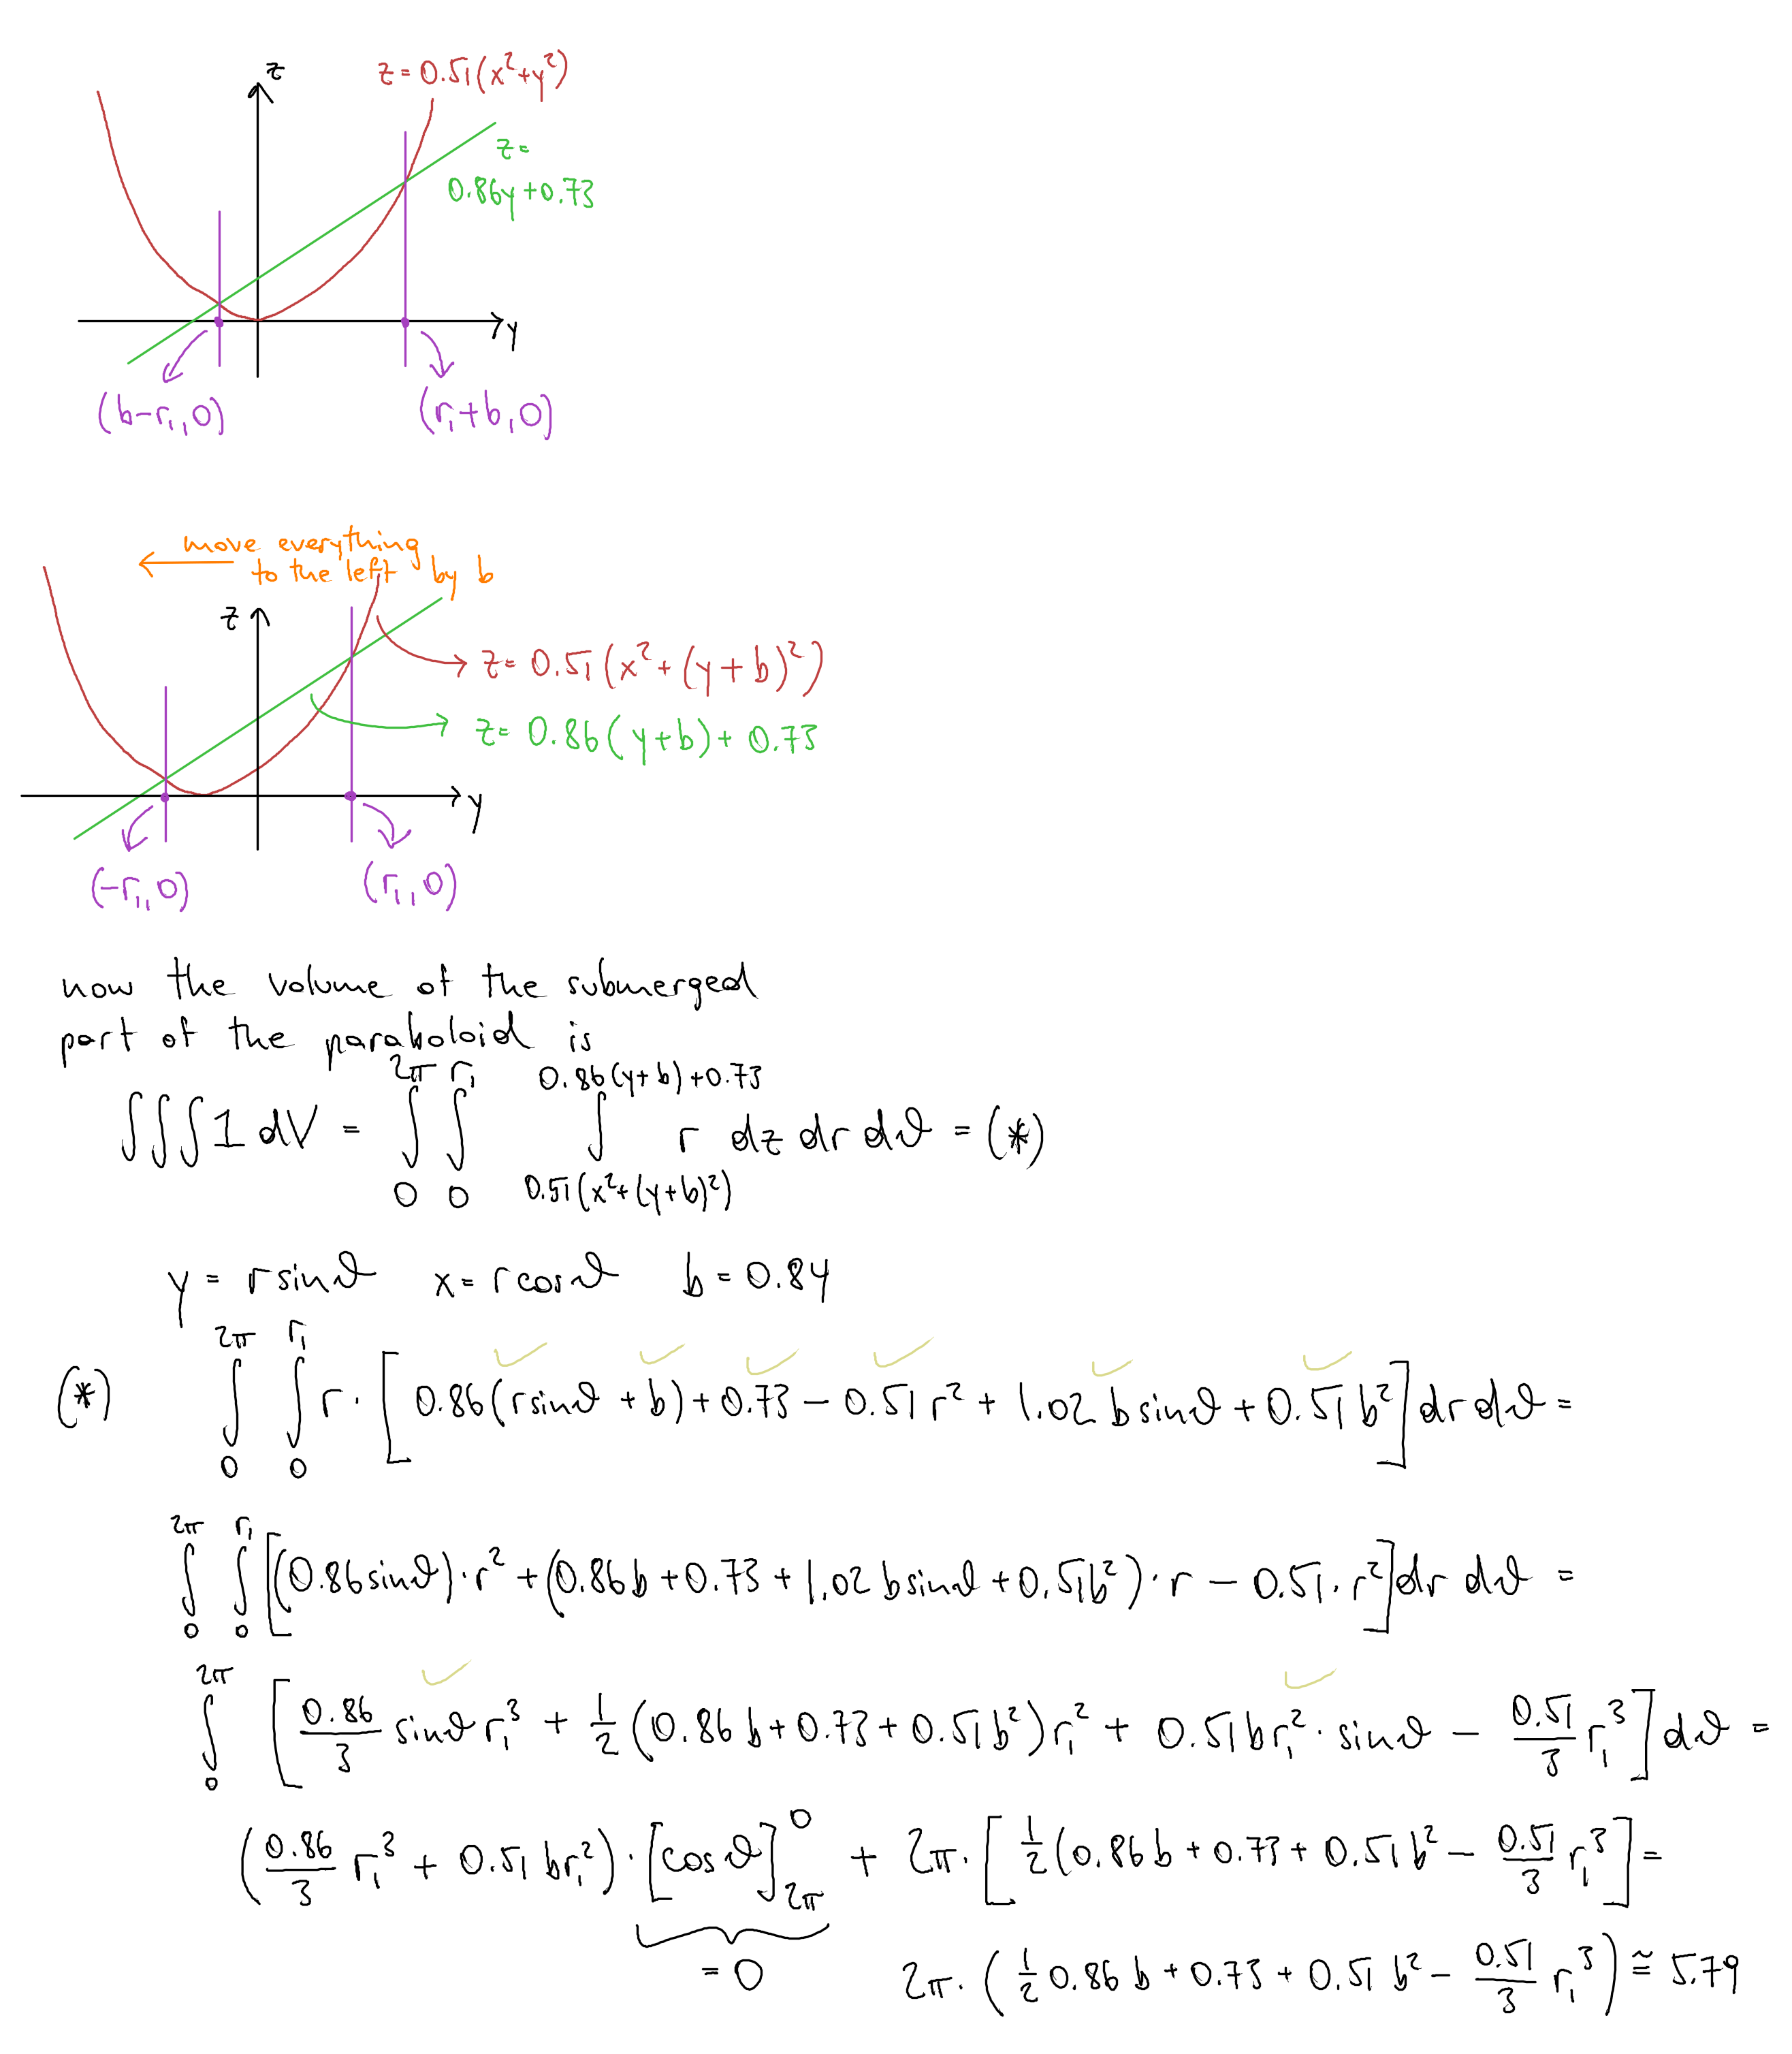 z
z = 0.51(x²+y²)
z =
0.86y+0.73
y
(b-r₁,0)
(r₁+b,0)
move everything
to the left by b
z
z = 0.51(x²+(y+b)²)
z = 0.86(y+b)+0.73
y
(-r₁,0)
(r₁,0)
now the volume of the submerged
part of the paraboloid is
∫∫∫1 dV = ∫₀^{2π} ∫₀^{r₁} ∫_{0.51(x²+(y+b)²)}^{0.86(y+b)+0.73} r dz dr dϑ = (*)
y = r sinϑ x = r cosϑ b = 0.84
(*) ∫₀^{2π} ∫₀^{r₁} r · [0.86(r sinϑ + b) + 0.73 - 0.51 r² + 1.02 b sinϑ + 0.51 b²] dr dϑ =
∫₀^{2π} ∫₀^{r₁} [(0.86 sinϑ)·r² + (0.86b + 0.73 + 1.02 b sinϑ + 0.51b²)·r - 0.51·r²] dr dϑ =
∫₀^{2π} [0.86/3 sinϑ r₁³ + 1/2 (0.86b + 0.73 + 0.51b²) r₁² + 0.51 b r₁² · sinϑ - 0.51/3 r₁³] dϑ =
(0.86/3 r₁³ + 0.51 b r₁²) · [cosϑ]_{2π}^{0} + 2π · [1/2 (0.86b + 0.73 + 0.51 b² - 0.51/3 r₁³] =
= 0 2π · (1/2 0.86 b + 0.73 + 0.51 b² - 0.51/3 r₁³) ≅ 5.79